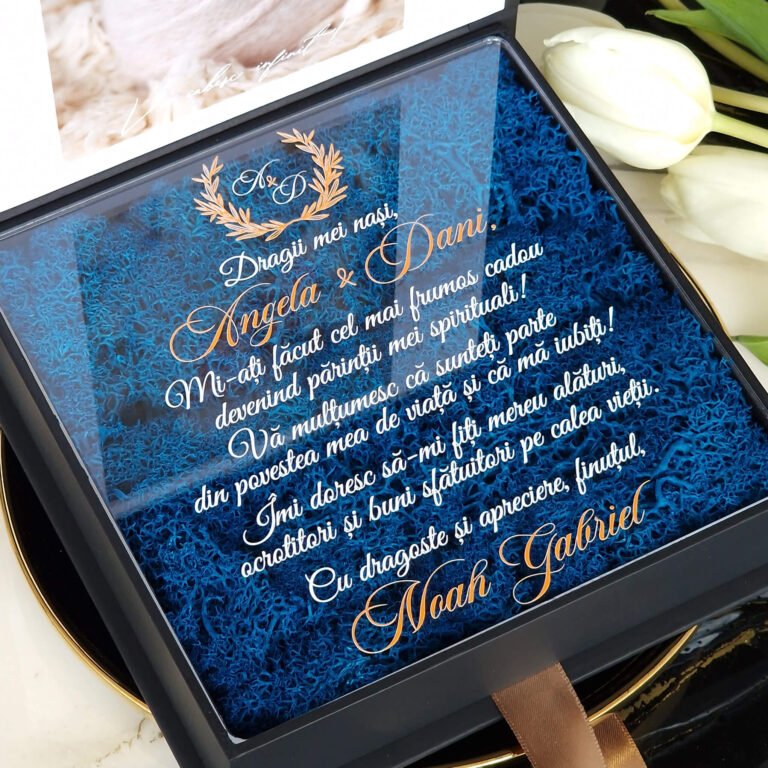 iubesc infinit!
A&D
Dragii mei nași,
Angela & Dani,
Mi-ați făcut cel mai frumos cadou
devenind părinții mei spirituali!
Vă mulțumesc că sunteți parte
din povestea mea de viață și că mă iubiți!
Îmi doresc să-mi fiți mereu alături,
ocrotitori și buni sfătuitori pe calea vieții.
Cu dragoste și apreciere, finuțul,
Noah Gabriel